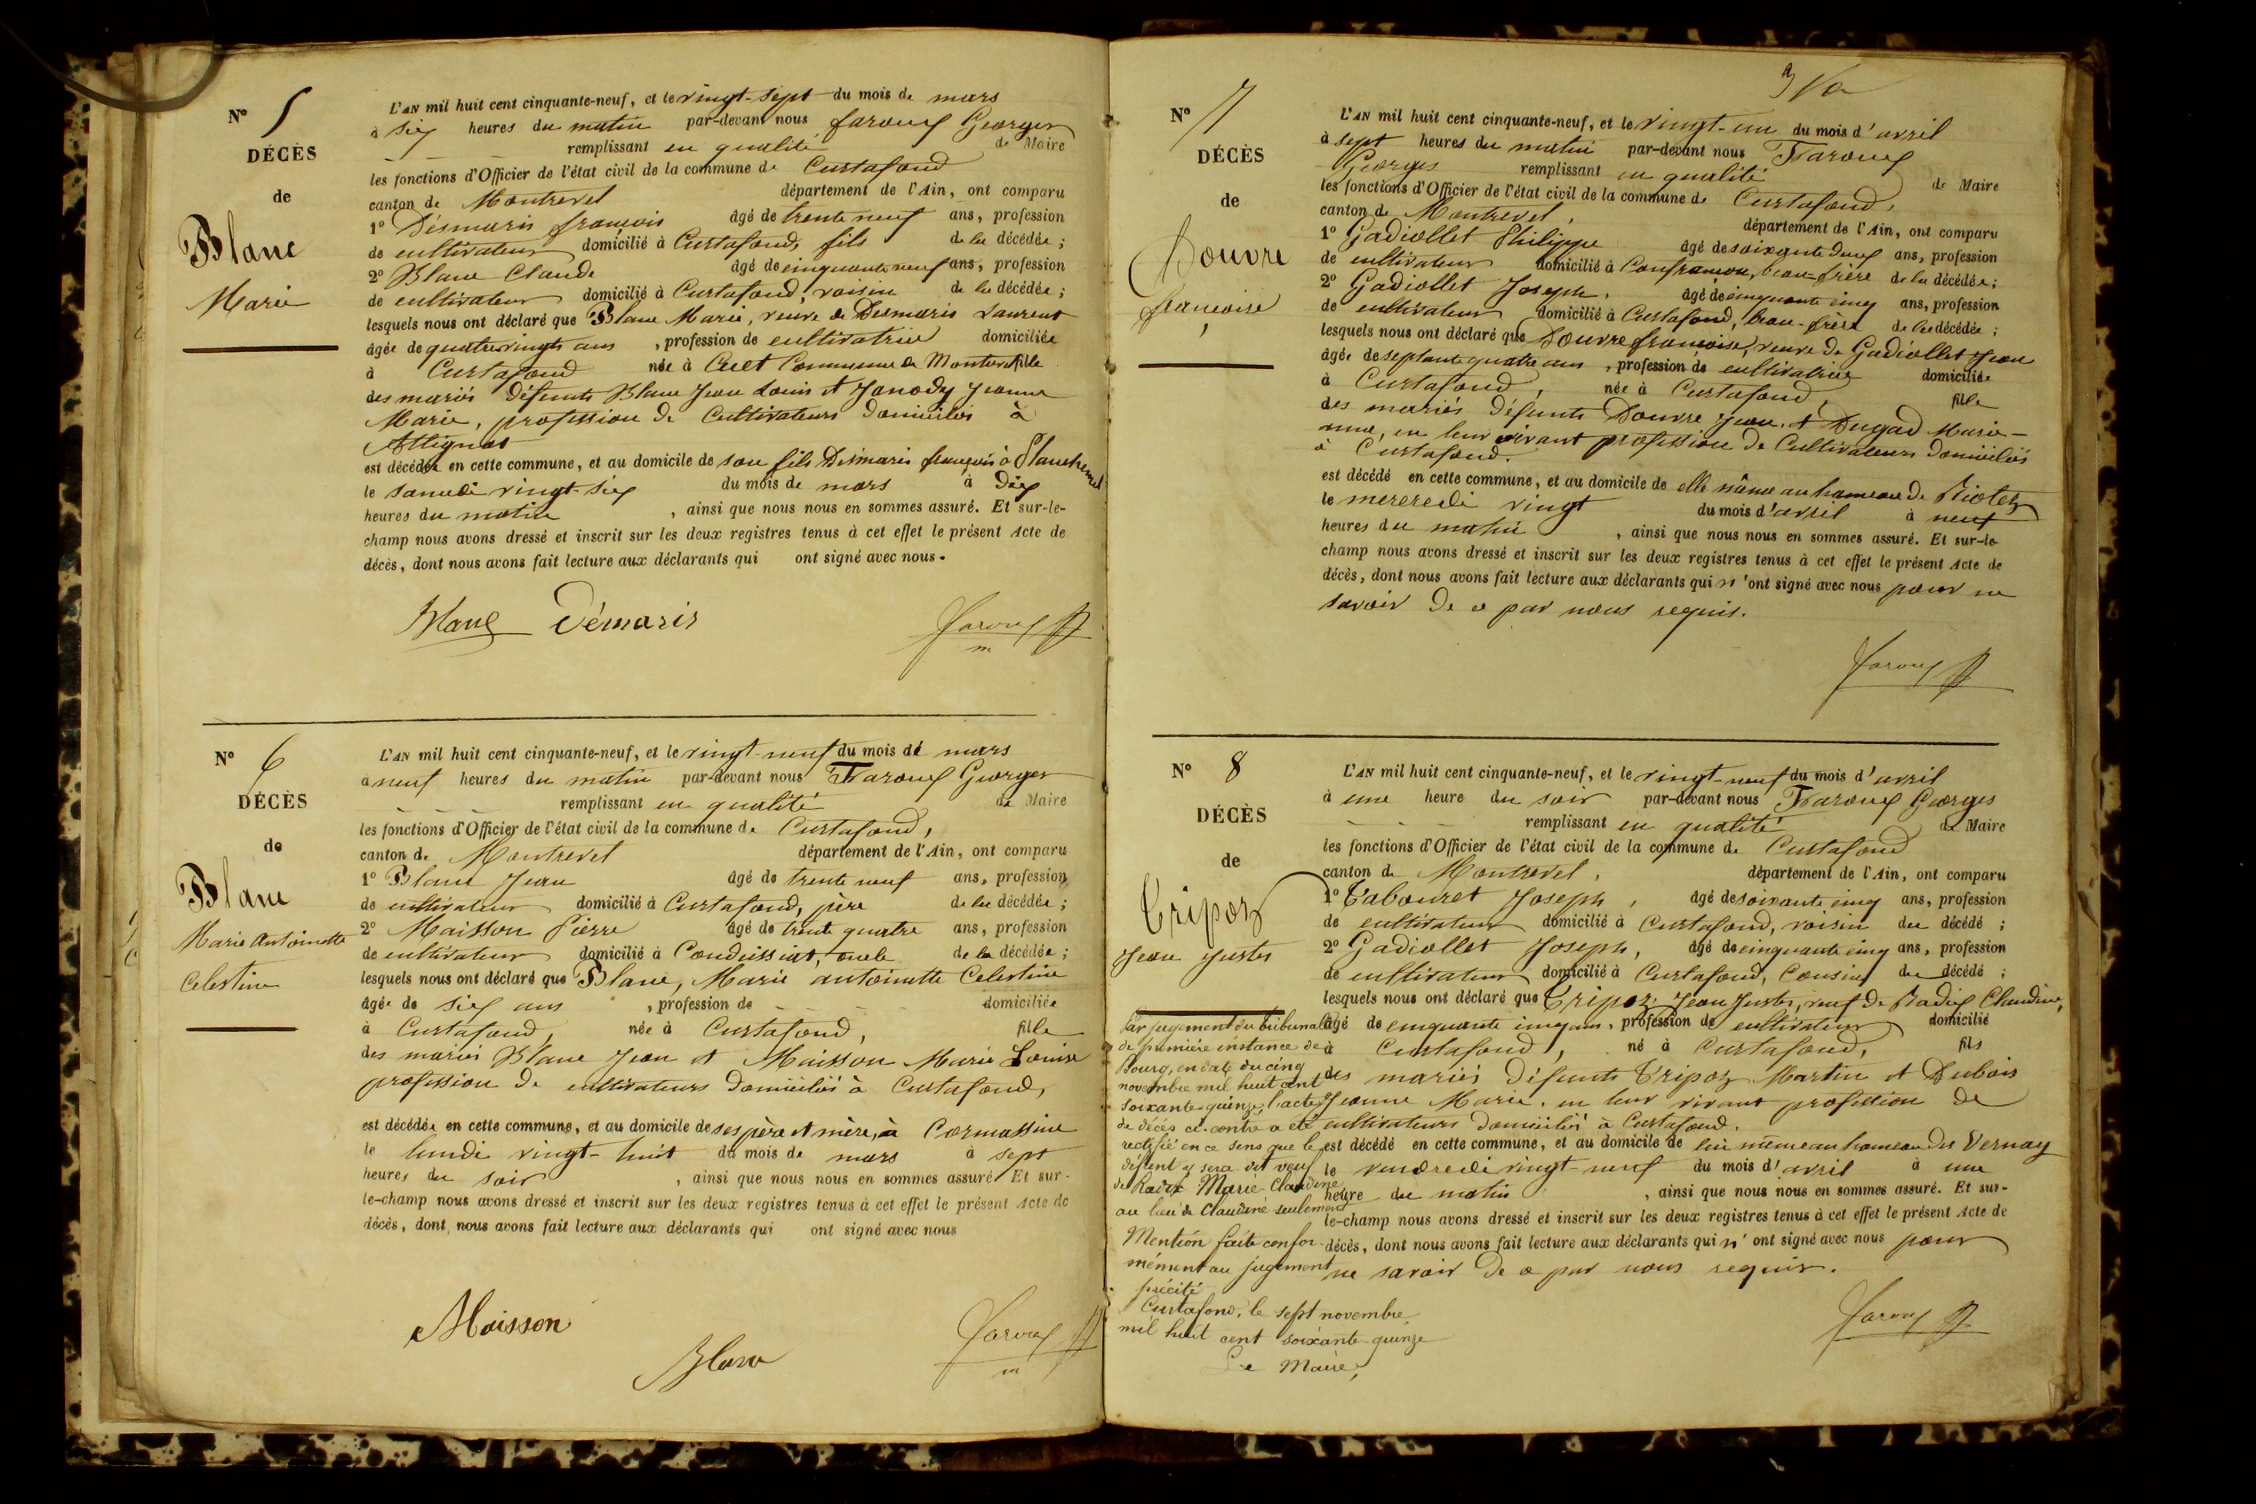 N° 5
DÉCÈS
de
Blanc
Marie
L'AN mil huit cent cinquante-neuf, et le vingt-sept du mois de mars
à six heures du matin par-devant nous faroux Georges
remplissant en qualité de Maire
les fonctions d'Officier de l'état civil de la commune de Curtafond
canton de Montrevel département de l'Ain, ont comparu
1° Désmaris françois âgé de trente neuf ans, profession
de cultivateur domicilié à Curtafond, fils de la décédée ;
2° Blanc Claude âgé de cinquante neuf ans, profession
de cultivateur domicilié à Curtafond, voisin de la décédée ;
lesquels nous ont déclaré que Blanc Marie, veuve de Desmaris Laurent
âgée de quatrevingts ans , profession de cultivatrice domiciliée
à Curtafond née à Cuet Commune de Montrevel fille
des mariés défunts Blanc Jean Louis et Janody Jeanne
Marie, profession de Cultivateurs domiciliés à
Attignat
est décédée en cette commune, et au domicile de son fils Desmaris françois à
le samedi vingt-six du mois de mars à dix
heures du matin , ainsi que nous nous en sommes assuré. Et sur-le-
champ nous avons dressé et inscrit sur les deux registres tenus à cet effet le présent Acte de
décès, dont nous avons fait lecture aux déclarants qui ont signé avec nous.
Blanc Démaris faroux
m
N° 6
DÉCÈS
de
Blanc
Marie Antoinette
Celestine
L'AN mil huit cent cinquante-neuf, et le vingt-neuf du mois de mars
à neuf heures du matin par-devant nous Faroux Georges
remplissant en qualité de Maire
les fonctions d'Officier de l'état civil de la commune de Curtafond,
canton de Montrevel département de l'Ain, ont comparu
1° Blanc Jean âgé de trente neuf ans, profession
de cultivateur domicilié à Curtafond, père de la décédée ;
2° Maisson Pierre âgé de trente quatre ans, profession
de cultivateur domicilié à Condeissiat, oncle de la décédée ;
lesquels nous ont déclaré que Blanc, Marie antoinette Celestine
âgée de six ans , profession de domiciliée
à Curtafond, née à Curtafond, fille
des mariés Blanc Jean et Maisson Marie Louise
profession de cultivateurs domiciliés à Curtafond,
est décédée en cette commune, et au domicile de ses père et mère, à Cormassine
le lundi vingt-huit du mois de mars à sept
heures du soir , ainsi que nous nous en sommes assuré. Et sur-
le-champ nous avons dressé et inscrit sur les deux registres tenus à cet effet le présent Acte de
décès, dont nous avons fait lecture aux déclarants qui ont signé avec nous
Maisson
Blanc
faroux
m
N° 7
DÉCÈS
de
Douvre
françoise
L'AN mil huit cent cinquante-neuf, et le vingt-un du mois d'avril
à sept heures du matin par-devant nous Faroux
Georges remplissant en qualité de Maire
les fonctions d'Officier de l'état civil de la commune de Curtafond,
canton de Montrevel, département de l'Ain, ont comparu
1° Gadiollet Philippe âgé de soixante deux ans, profession
de cultivateur domicilié à Confrançon, beau-frère de la décédée ;
2° Gadiollet Joseph, âgé de cinquante cinq ans, profession
de cultivateur domicilié à Curtafond, beau-frère de la décédée ;
lesquels nous ont déclaré que Douvre françoise, veuve de Gadiollet Jean
âgée de septante quatre ans , profession de cultivatrice domiciliée
à Curtafond, née à Curtafond, fille
des mariés défunts Douvre Jean, et Dugad Marie-
anne, en leur vivant profession de Cultivateurs domiciliés
à Curtafond.
est décédé en cette commune, et au domicile de elle même au hameau de
le mercredi vingt du mois d'avril à neuf
heures du matin , ainsi que nous nous en sommes assuré. Et sur-le-
champ nous avons dressé et inscrit sur les deux registres tenus à cet effet le présent Acte de
décès, dont nous avons fait lecture aux déclarants qui n'ont signé avec nous pour ne
savoir de ce par nous requis.
faroux
N° 8
DÉCÈS
de
Tripoz
Jean Juster
L'AN mil huit cent cinquante-neuf, et le vingt-neuf du mois d'avril
à une heure du soir par-devant nous Faroux Georges
remplissant en qualité de Maire
les fonctions d'Officier de l'état civil de la commune de Curtafond
canton de Montrevel, département de l'Ain, ont comparu
1° Tabouret Joseph, âgé de soixante cinq ans, profession
de cultivateur domicilié à Curtafond, voisin du décédé ;
2° Gadiollet Joseph, âgé de cinquante cinq ans, profession
de cultivateur domicilié à Curtafond, Cousin du décédé ;
lesquels nous ont déclaré que Tripoz Jean Juster, veuf de Radix Claudine,
âgé de cinquante cinq ans, profession de cultivateur domicilié
à Curtafond, né à Curtafond, fils
des mariés défunts Tripoz Martin et Dubois
Jeanne Marie, en leur vivant profession de
cultivateurs domiciliés à Curtafond.
est décédé en cette commune, et au domicile de lui même au hameau du Vernay
le vendredi vingt-neuf du mois d'avril à une
heure du matin , ainsi que nous nous en sommes assuré. Et sur-
le-champ nous avons dressé et inscrit sur les deux registres tenus à cet effet le présent Acte de
décès, dont nous avons fait lecture aux déclarants qui n'ont signé avec nous pour
ne savoir de ce par nous requis.
faroux
Par jugement du tribunal
de première instance de
Bourg, en date du cinq
novembre mil huit cent
soixante-quinze, l'acte
de décès ci-contre a été
rectifié en ce sens que le
défunt y sera dit veuf
de Radix Marie-Claudine
au lieu de Claudine seulement
Mention faite confor-
mément au jugement
précité
Curtafond, le sept novembre
mil huit cent soixante-quinze
Le Maire,